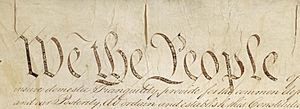 We the People
insure domestic Tranquility, provide for the common def
and our Posterity, do ordain and establish this Constitut